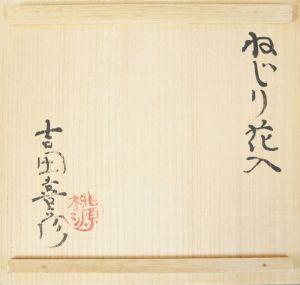 ねじり花入
吉田喜彦
桃源